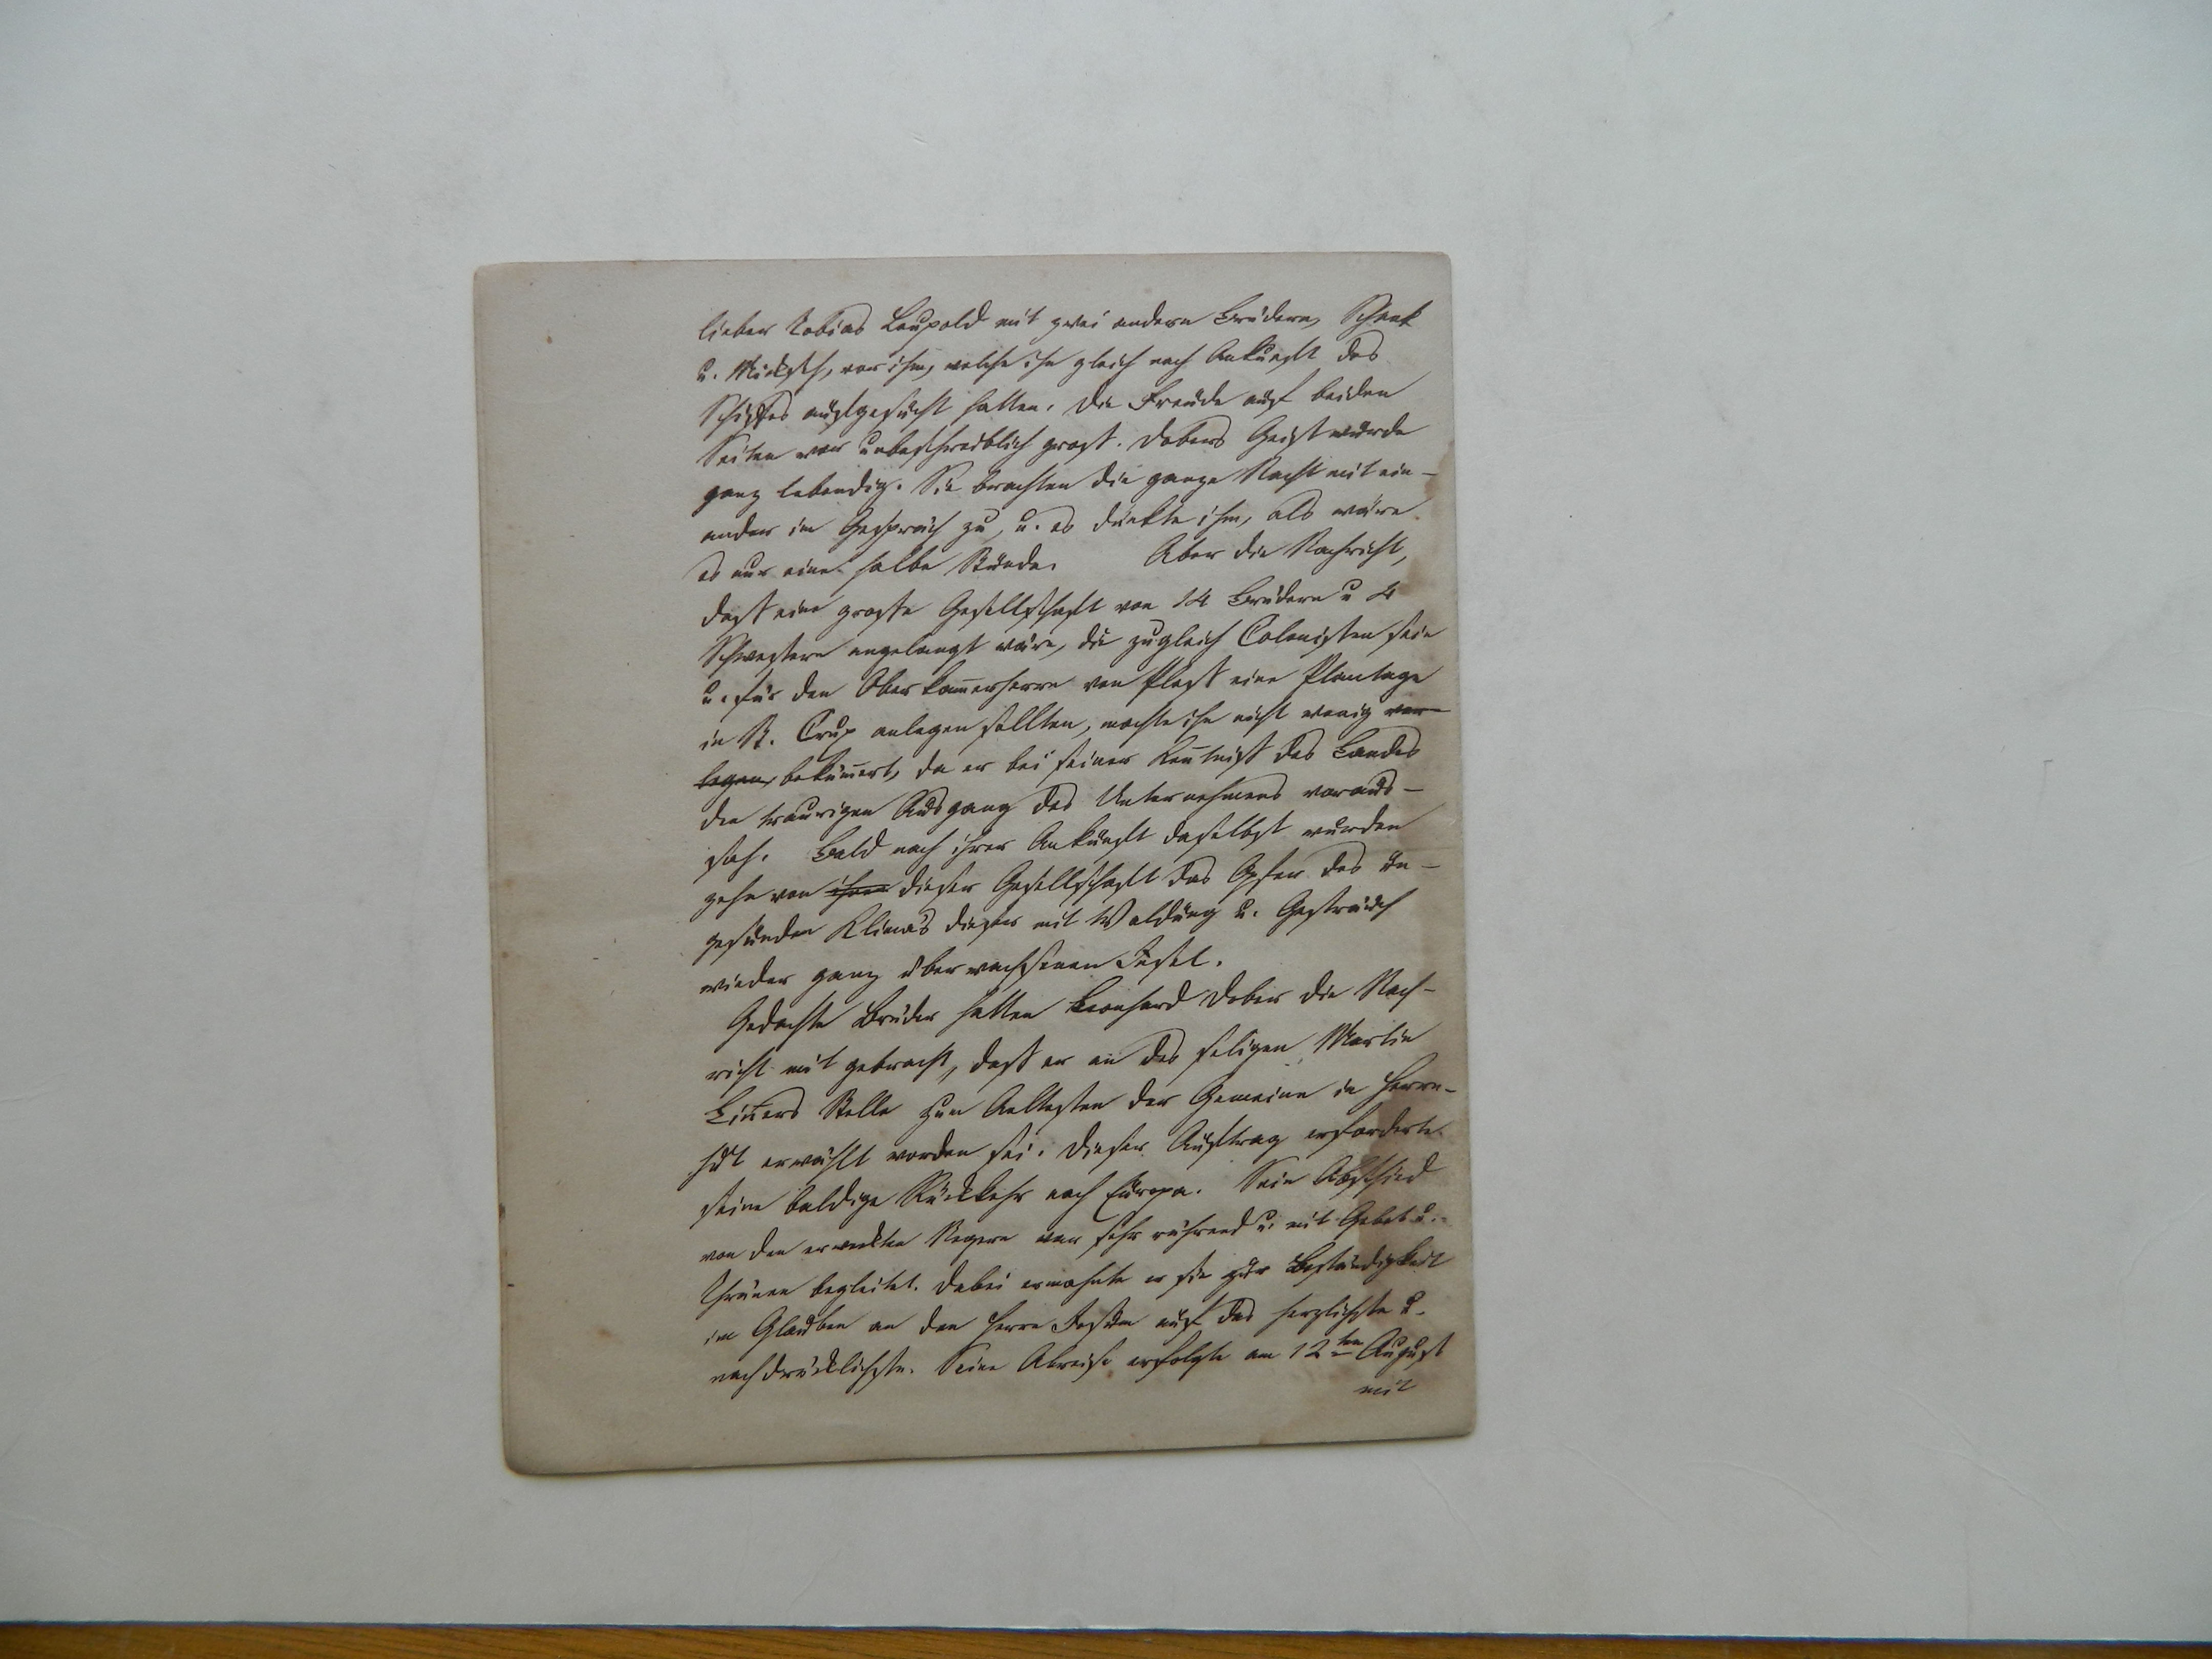 lieber Tobias Leupold mit zwei andern Brüdern, Schenk
u. Miksch, vor ihm, welche ihn gleich nach Ankunft des
Schiffes aufgesucht hatten. Die Freude auf beiden
Seiten war unbeschreiblich gross. Dobers Geist wurde
ganz lebendig. Sie brachten die ganze Nacht mit ein-
ander im Gespräch zu, u. es dünkte ihm, als wäre
es nur eine halbe Stunde. Aber die Nachricht,
dass eine grosse Gesellschaft von 14 Brüdern u 4
Schwestern angelangt wäre, die zugleich Colonisten sein
u. für den Oberkam̅erherrn von Pless eine Plantage
in St. Crux anlegen sollten, machte ihn nicht wenig ver-
legen, beküm̅ert, da er bei seiner Ken̅tniss des Landes
den traurigen Ausgang des Unternehmens voraus-
sah. Bald nach ihrer Ankunft daselbst wurden
zehn von ihnen dieser Gesellschaft das Opfer des un-
gesunden Klima's dieser mit Waldung u. Gesträuch
wieder ganz überwachsenen Insel.
Gedachte Brüder hatten Leonhard Dober die Nach-
richt mit gebracht, dass er an des seligen Martin
Lin̅ers Stelle zum Aeltesten der Gemeine in Herrn-
hut erwählt worden sei. Dieser Auftrag erforderte
seine baldige Rückkehr nach Europa. Sein Abschied
von den erweckten Negern war sehr rührend u. mit Gebet u.
Thränen begleitet. Dabei ermahnte er sie zur Beständigkeit
im Glauben an den Herrn Jesum auf das herzlichste u.
nachdrücklichste. Seine Abreise erfolgte am 12ten August
mit